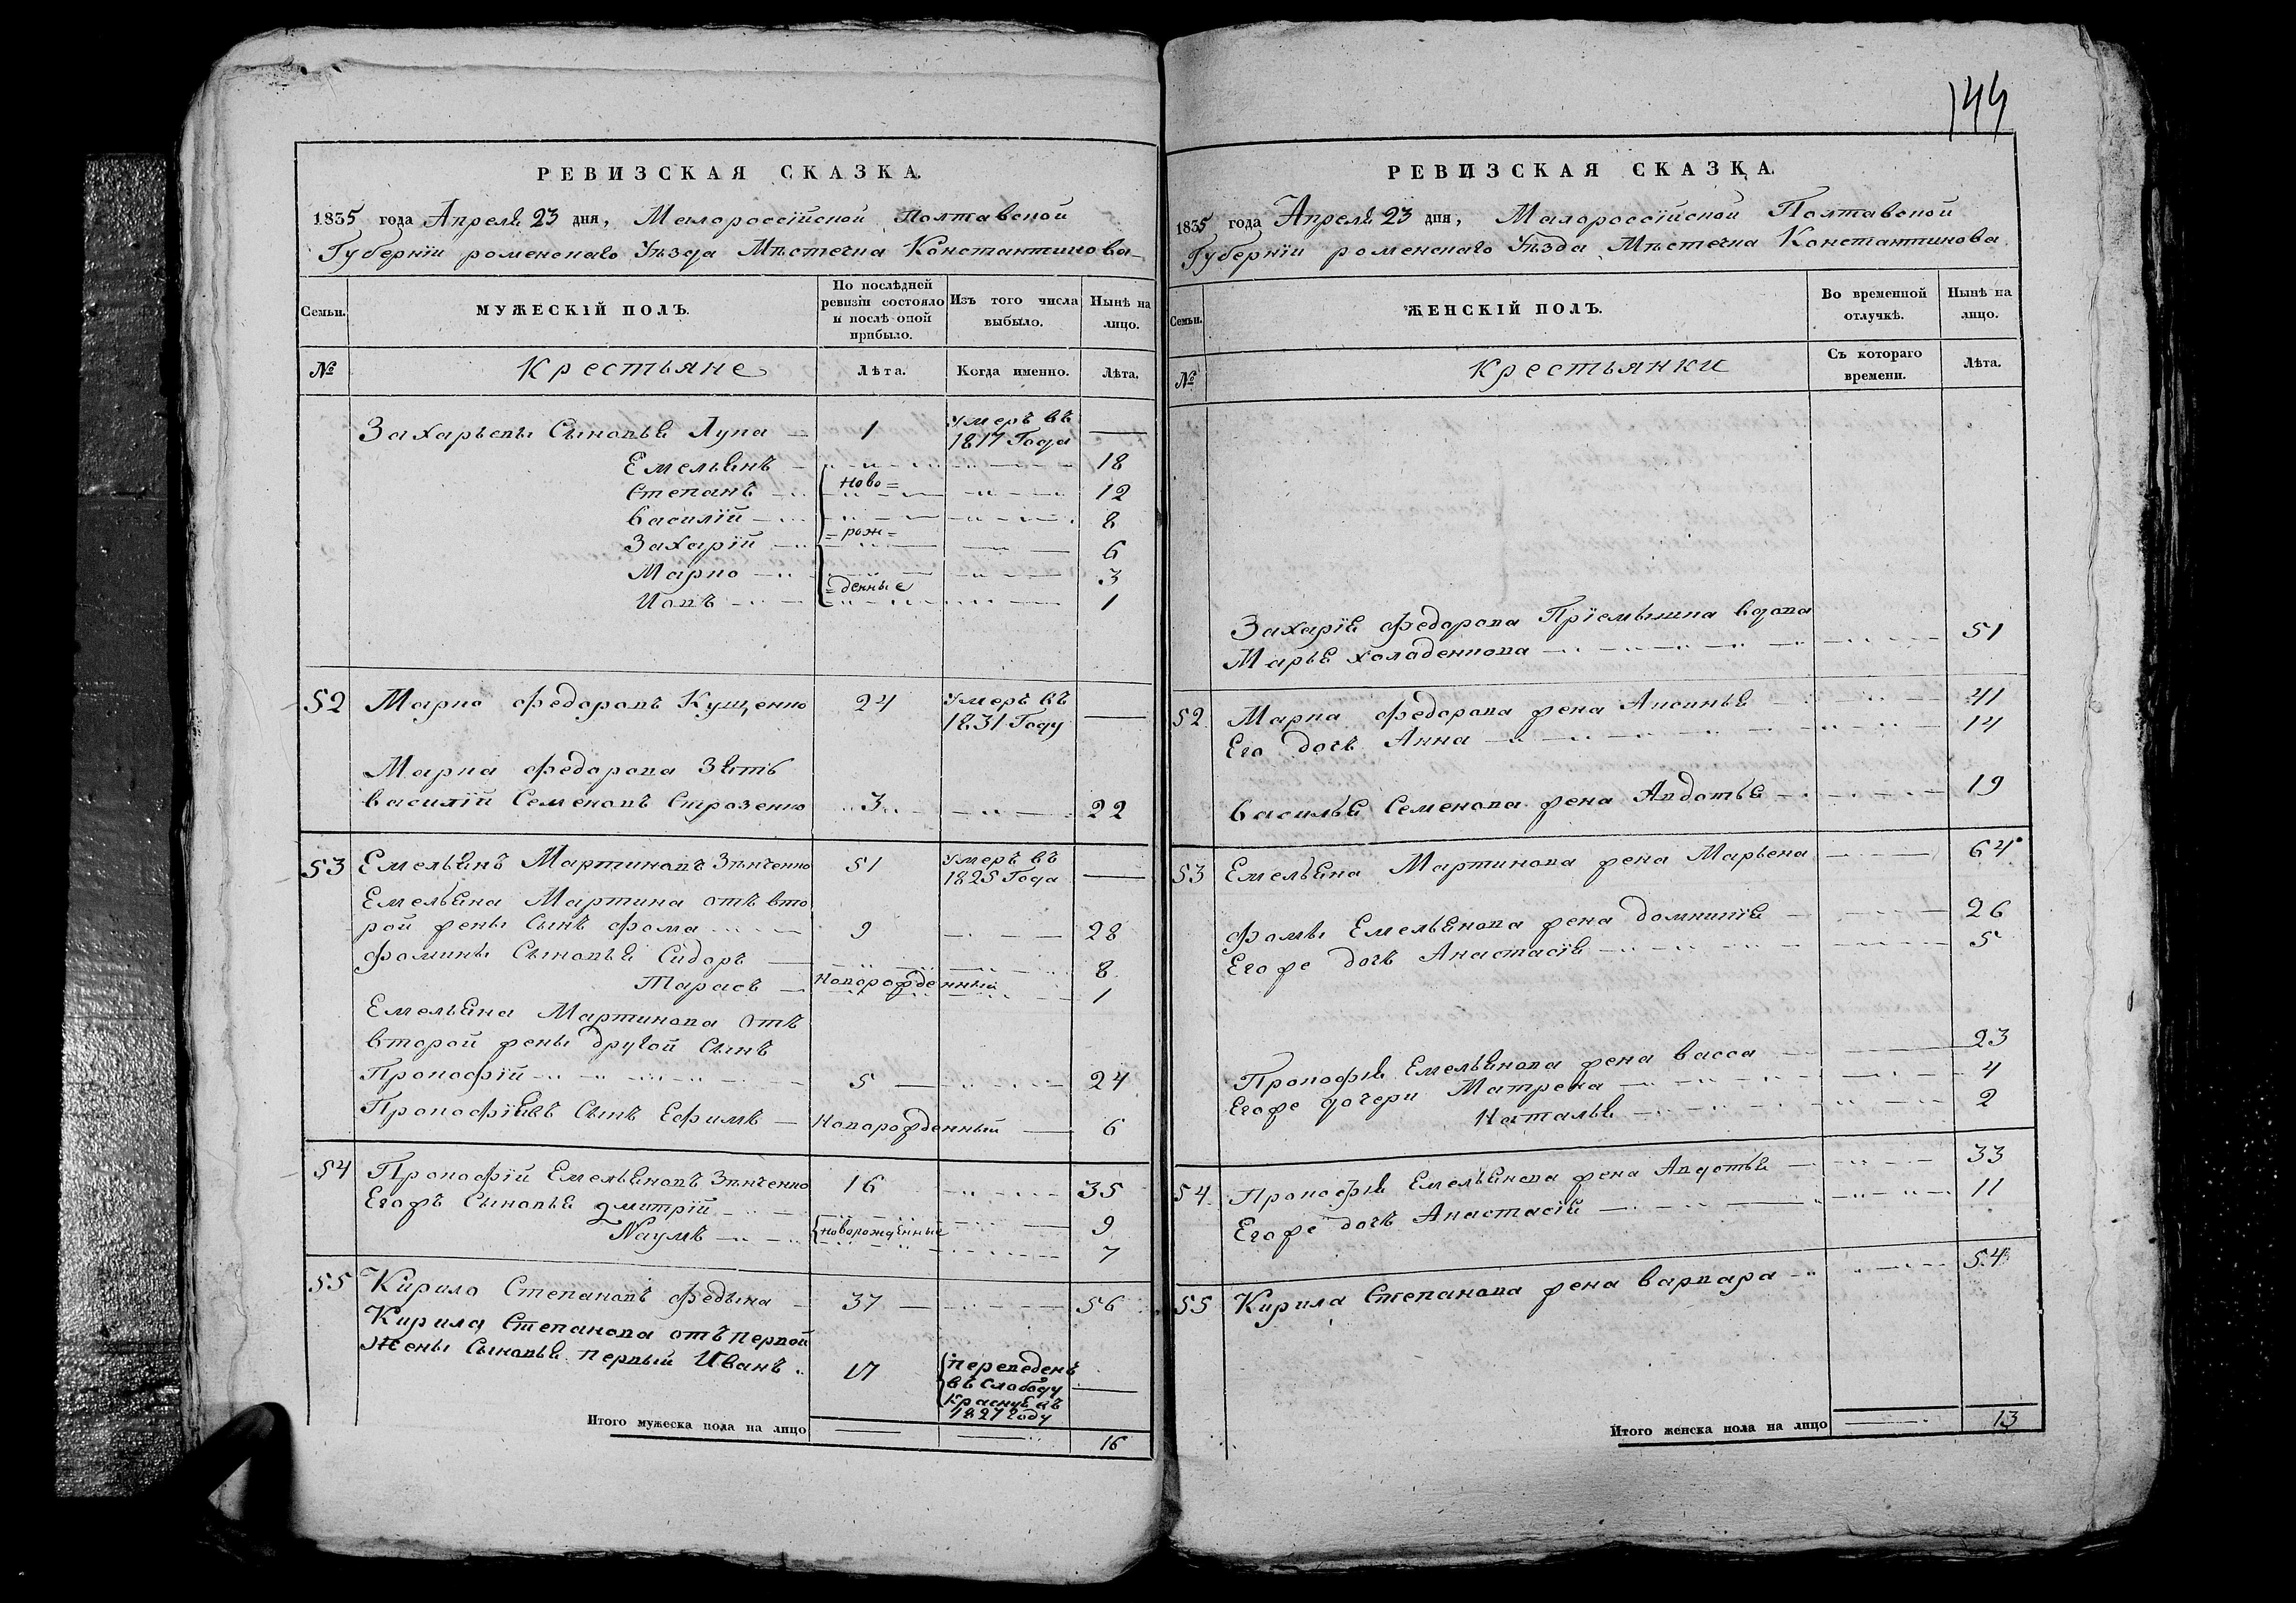 144
РЕВИЗСКАЯ СКАЗКА.
1835 года Апреля 23 дня, Малороссійской Полтавской
Губерніи роменскаго Уѣзда Мѣстечка Константинова
Семьи.
МУЖЕСКІЙ ПОЛЪ.
По послѣдней ревизіи состояло и послѣ оной прибыло.
Изъ того числа выбыло.
Нынѣ на лицо.
№
Крестьяне
Лѣта.
Когда именно.
Лѣта.
Захарьевы Сыновья Лука 1 Умеръ въ 1817 Года
Емельянъ 18
Степанъ ново= 12
Василій 8
Захарій =рож= 6
Марко 3
Іовъ =денные 1
52 Марко Федоровъ Кущенко 24 Умеръ въ 1831 Году
Марка Федорова Зять
Василій Семеновъ 3 22
53 Емельянъ Мартиновъ Зѣнченко 51 Умеръ въ 1825 Года
Емельяна Мартина отъ вто
рой жены Сынъ Фома 9 28
Фомины Сыновья Сидоръ 8
Тарасъ Новорожденный 1
Емельяна Мартинова отъ
второй жены другой Сынъ
Прокофій 5 24
Прокофіевъ Сынъ Ефимъ Новорожденный 6
54 Прокофій Емельяновъ Зѣнченко 16 35
Егожъ Сыновья Дмитрій 9
Наумъ новорожденные 7
55 Кирило Степановъ Федына 37 56
Кирила Степанова отъ первой
жены Сыновья первый Иванъ 17 переведенъ въ Слободу въ 1827 году
Итого мужеска пола на лицо 16
РЕВИЗСКАЯ СКАЗКА.
1835 года Апреля 23 дня, Малороссійской Полтавской
Губерніи роменскаго Уѣзда Мѣстечка Константинова
Семьи.
ЖЕНСКІЙ ПОЛЪ.
Во временной отлучкѣ.
Нынѣ на лицо.
№
Крестьянки
Съ котораго времени.
Лѣта.
Захарія Федорова Пріемышка вдова
Марья Холаденкова 51
52 Марка Федорова жена Аксинья 41
Его дочь Анна 14
Василья Семенова жена Авдотья 19
53 Емельяна Мартинова жена Марьена 64
Фомы Емельянова жена Домникія 26
Егоже дочь Анастасія 5
Прокофія Емельянова жена Васса 23
Егоже дочери Матрена 4
Наталья 2
54 Прокофія Емельянова жена Авдотья 33
Егоже дочь Анастасій 11
55 Кирила Степанова жена Варвара 54
Итого женска пола на лицо 13